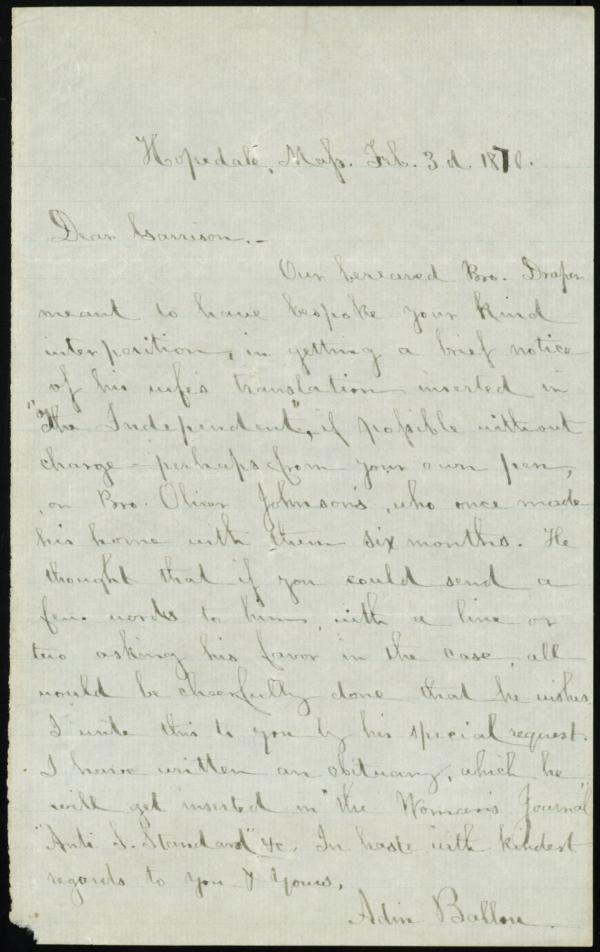 Hopedale, Mass. Feb. 3d 1870.
Dear Garrison.–
Our bereaved Bro. Draper
meant to have bespoke your kind
interposition, in getting a brief notice
of his wife's translation inserted in
"The Independent", if possible without
charge – perhaps from your own pen,
or Bro. Oliver Johnson's, who once made
his home with them six months. He
thought that if you could send a
few words to him, with a line or
two asking his favor in the case, all
would be cheerfully done that he wishes.
I write this to you by his special request.
I have written an obituary, which he
will get inserted in "the Woman's Journal"
"Anti S. Standard" &c. In haste with kindest
regards to you & yours,
Adin Ballou.